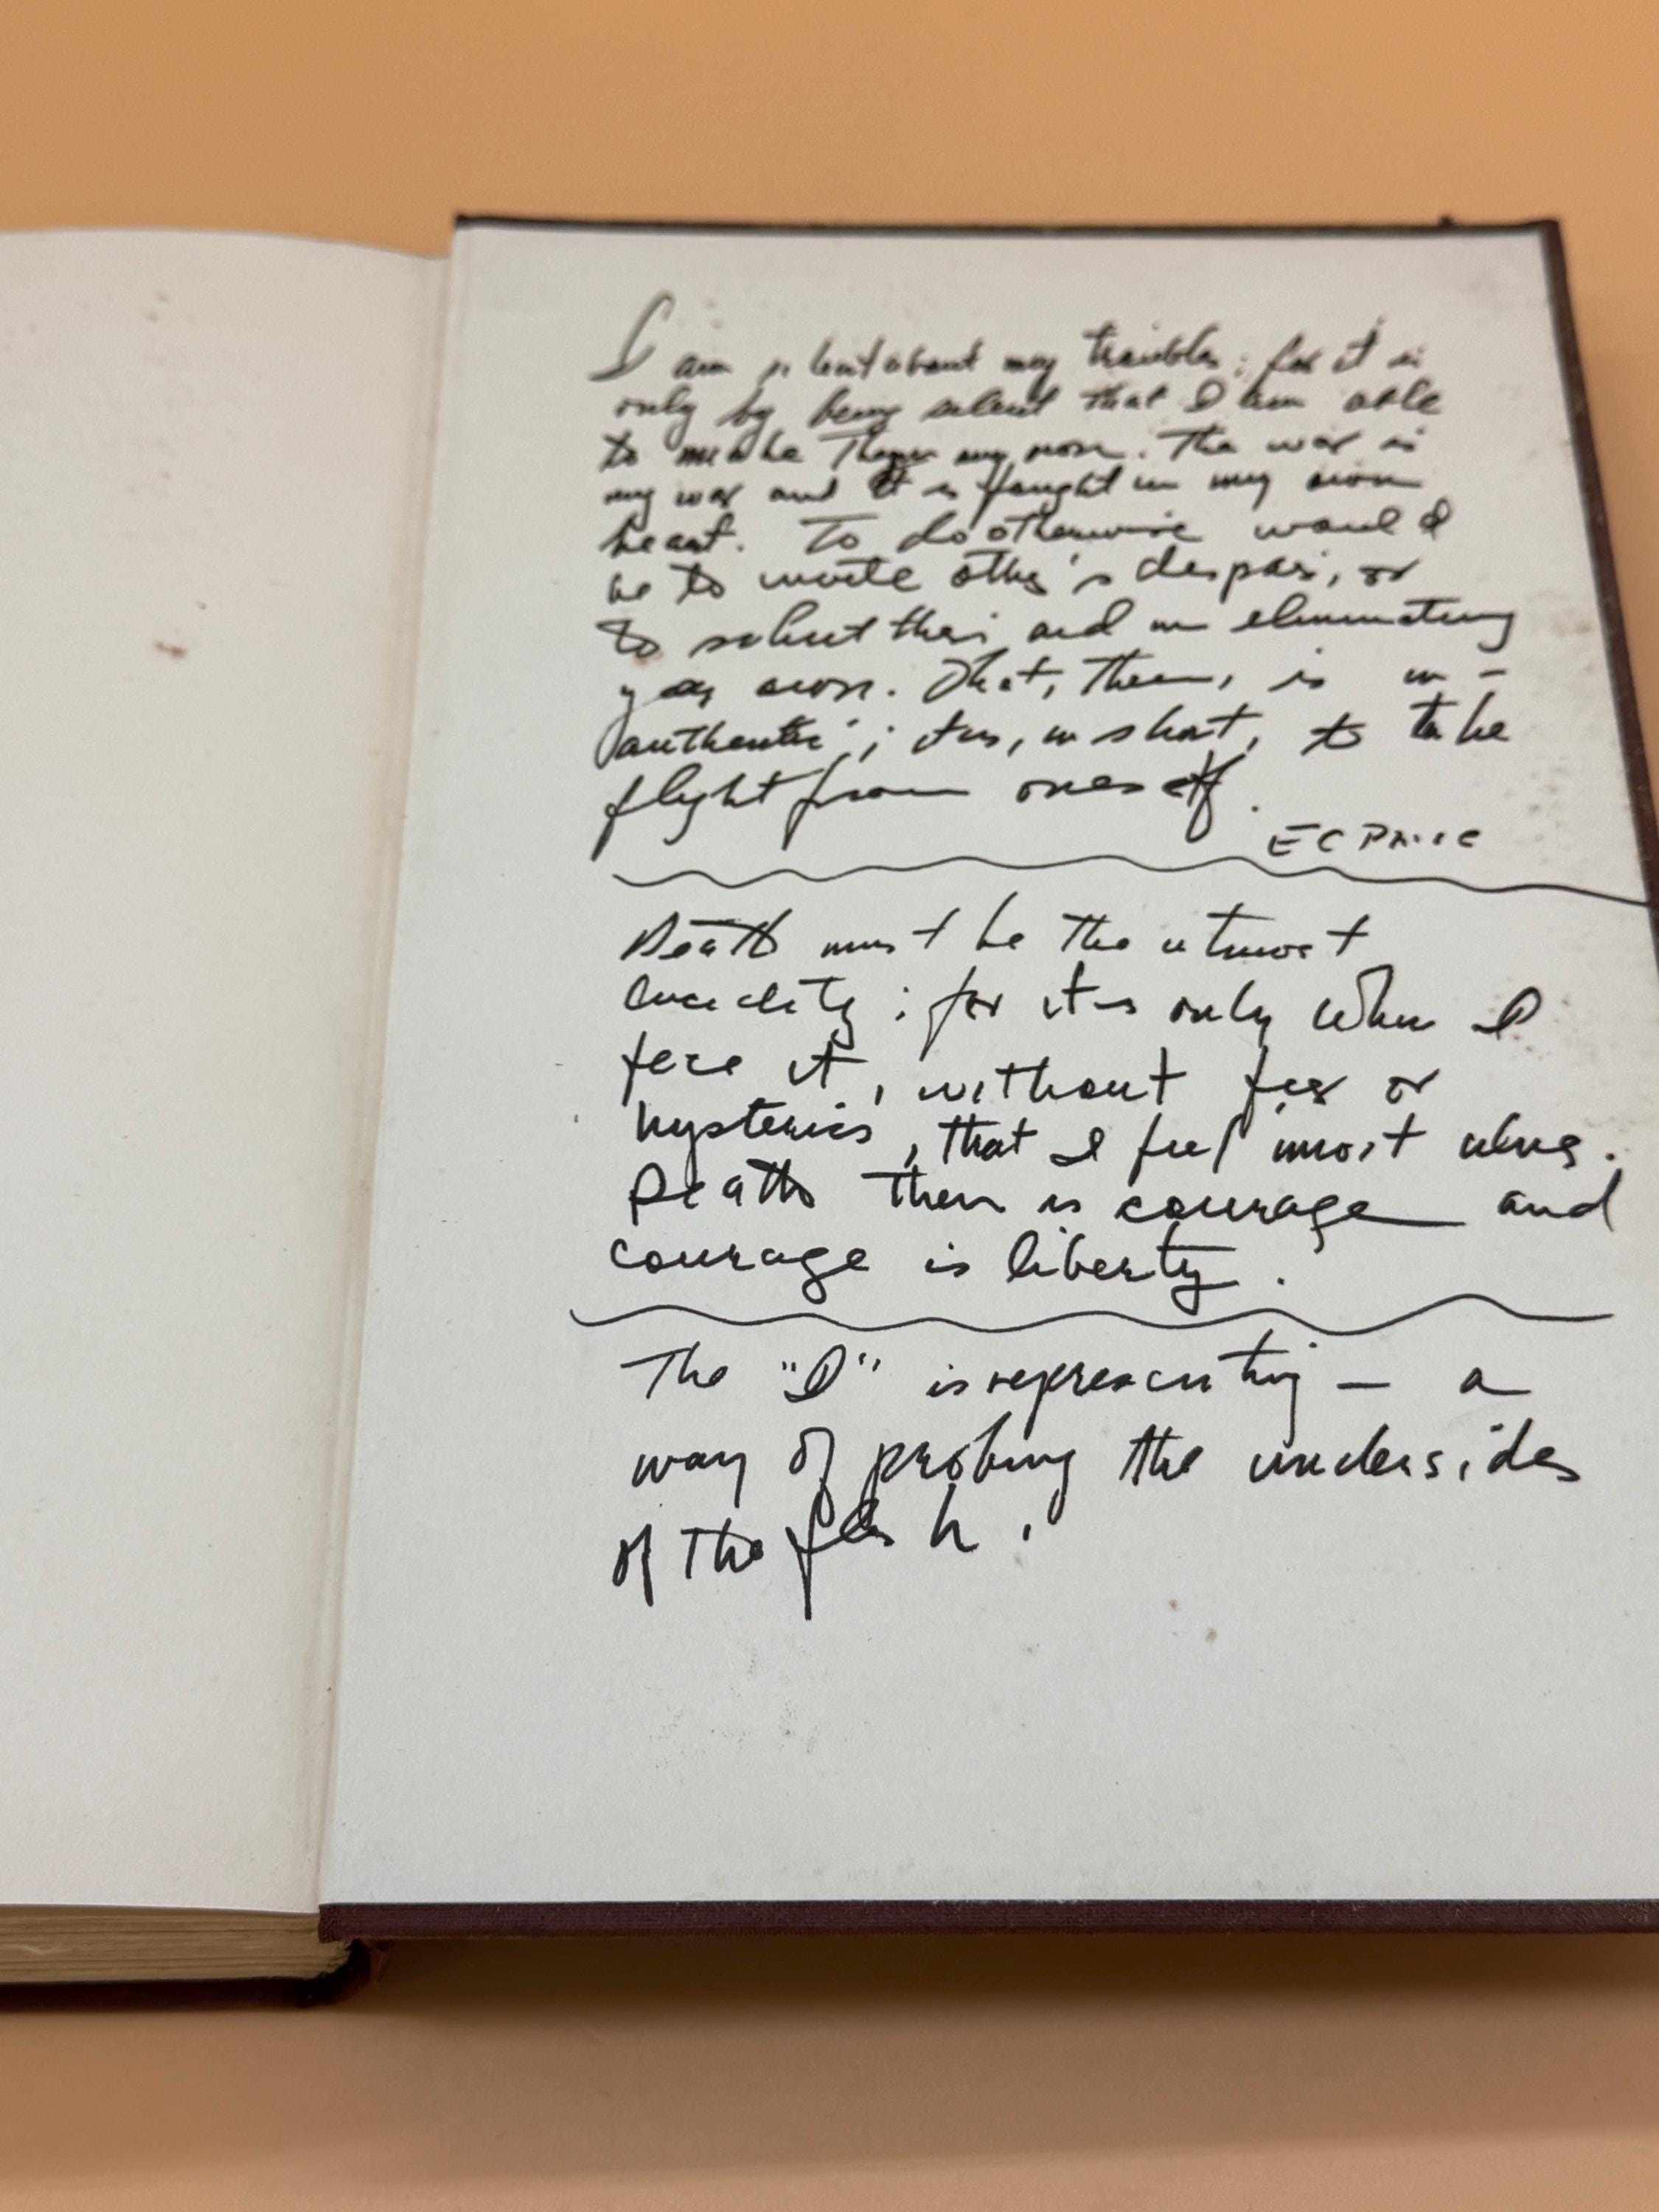 I am silent about my troubles; for it is
only by being silent that I am able
to make them my own. The war is
my war and it is fought in my own
heart. To do otherwise would
be to invite other's despair, or
to solicit their aid in eliminating
your own. That, then, is in-
authentic; it is, in short, to take
flight from oneself.
EC Price
Death must be the utmost
lucidity; for it is only when I
face it, without fear or
hysterics, that I feel most alive.
Death then is courage and
courage is liberty.
The "I" is representing — a
way of probing the undersides
of the flesh.